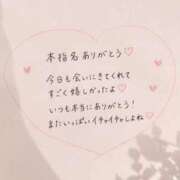 本指名ありがとう♡
今日も会いにきてくれて
すごく嬉しかったよ♡
いつも本当にありがとう!
またいっぱいイチャイチャしよね♡